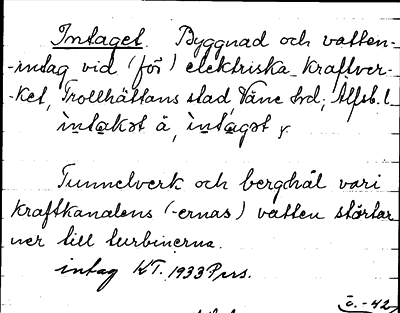 Intaget. Byggnad och vatten-
-intag vid (för) elektriska kraftver-
-ket, Trollhättans stad, Väne hd; Älfsb. l.
intakət ä, intagət y.
Tunnelverk och berghål vari
kraftkanalens (-ernas) vatten störtar
ner till turbinerna.
intag KT. 1933 Pers.
ö. -42